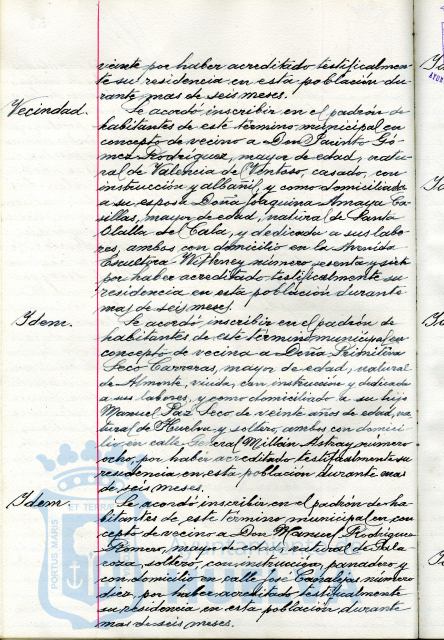 veinte por haber acreditado testificalmen-
te su residencia en esta población du-
rante mas de seis meses.
Vecindad.
Se acordó inscribir en el padrón de
habitantes de este término municipal en
concepto de vecino a Don Jacinto Gó-
mez Rodríguez, mayor de edad, natu-
ral de Valencia de Ventoso, casado, con
instrucción y albañil, y como domiciliada
a su esposa Doña Joaquina Amaya Ca-
sillas, mayor de edad, natural de Santa
Olalla de Cala, y dedicada a sus labo-
res, ambos con domicilio en la Avenida
Escultora Whitney número sesenta y siete
por haber acreditado testificalmente su
residencia en esta población durante
mas de seis meses.
Idem.
Se acordó inscribir en el padrón de
habitantes de este término municipal en
concepto de vecina a Doña Primitiva
Seco Carreras, mayor de edad, natural
de Almonte, viuda, con instrucción y dedicada
a sus labores, y como domiciliado a su hijo
Manuel Paz Seco de veinte años de edad, na-
tural de Huelva y soltero, ambos con domici-
lio en calle General Millán Astray número
ocho, por haber acreditado testificalmente su
residencia en esta población durante mas
de seis meses.
Idem.
Se acordó inscribir en el padrón de ha-
bitantes de este término municipal en con-
cepto de vecino a Don Manuel Rodríguez
Romero, mayor de edad, natural de
soltero, con instrucción, panadero y
con domicilio en calle José Canalejas número
por haber acreditado testificalmente
su residencia en esta población durante
mas de seis meses.
PORTUS MARIS ET TERRAE